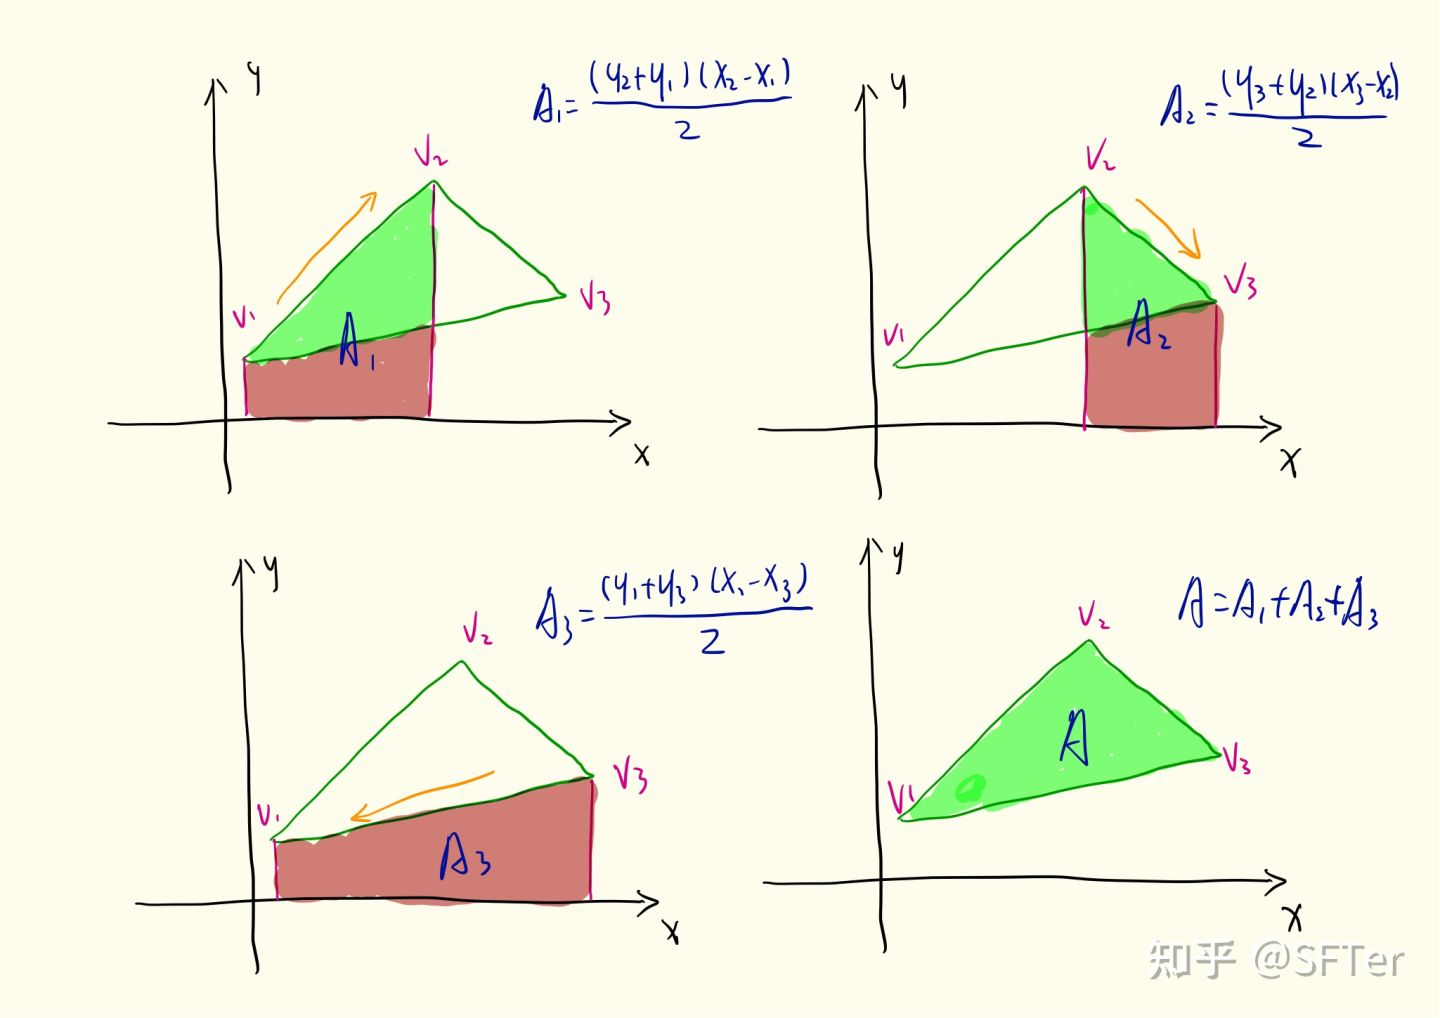 y
A₁=(y₂+y₁)(x₂-x₁)/2
V₂
V₁
V₃
A₁
x
y
A₂=(y₃+y₂)(x₃-x₂)/2
V₂
V₃
V₁
A₂
x
y
A₃=(y₁+y₃)(x₁-x₃)/2
V₂
V₃
V₁
A₃
x
y
A=A₁+A₂+A₃
V₂
A
V₃
V₁
x
知乎 @SFTer